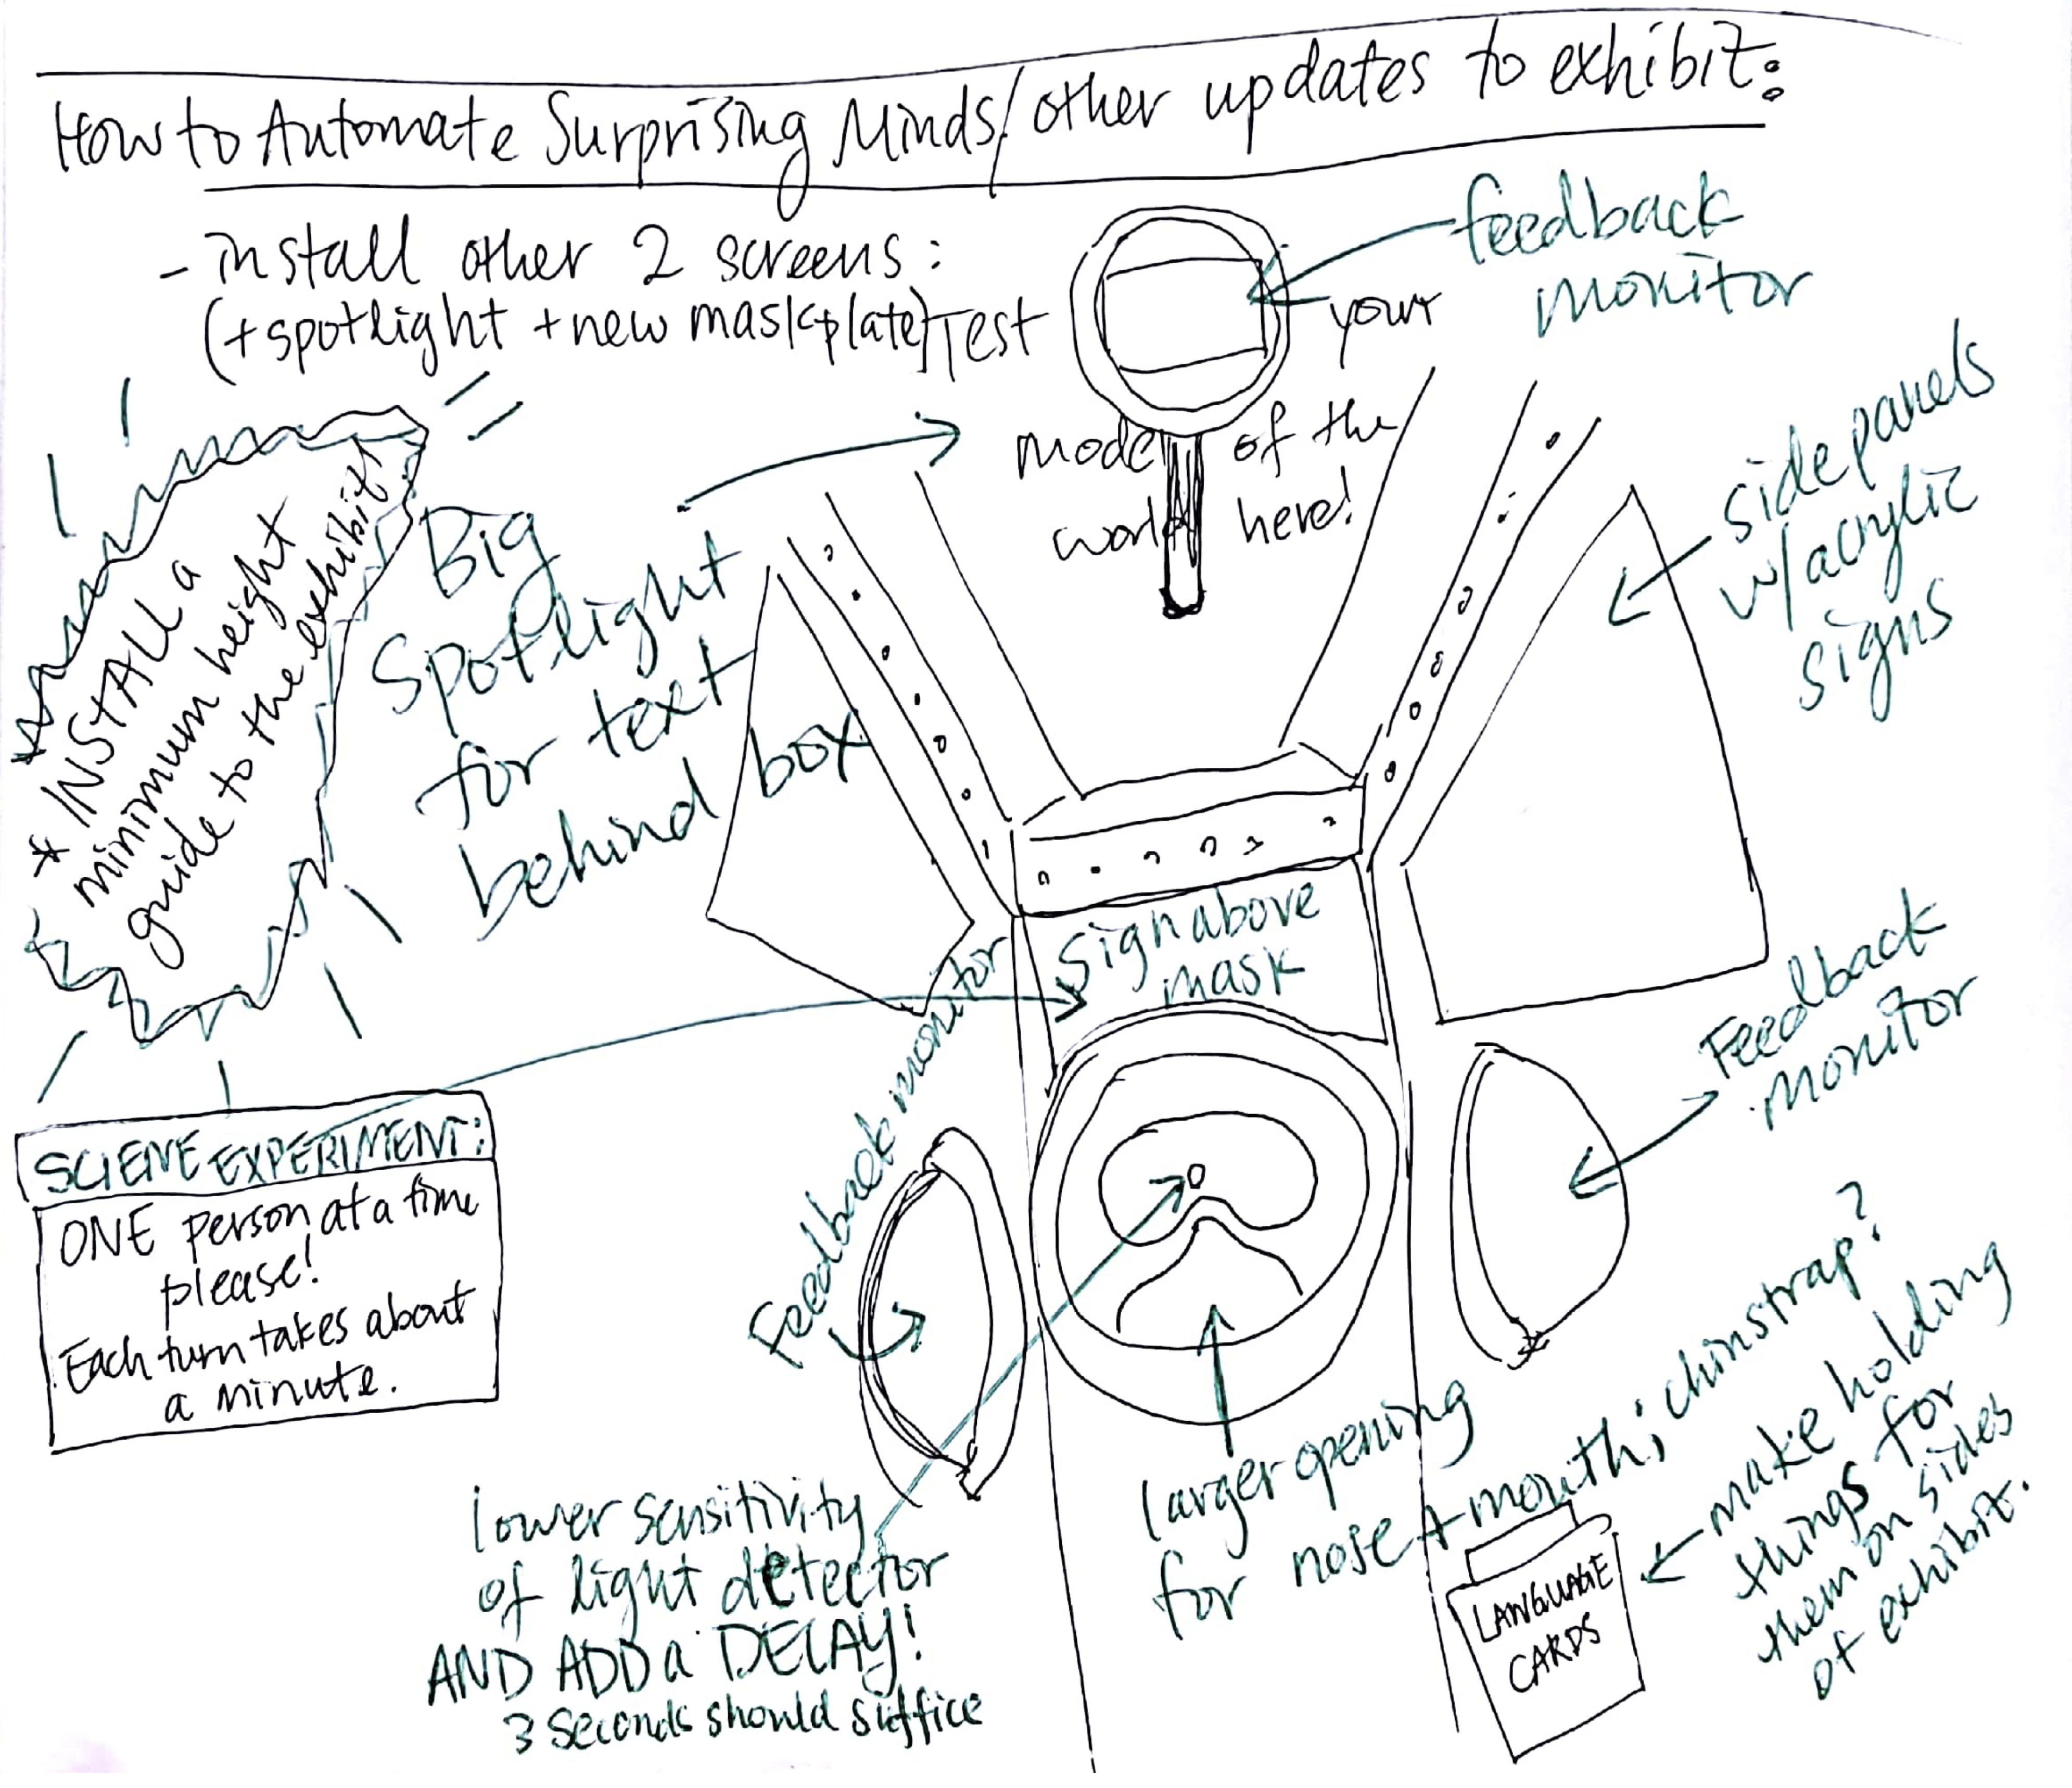 How to Automate Surprising Minds/other updates to exhibit:
- install other 2 screens:
(+spotlight + new maskplate)
Test your
model of the
world here!
feedback
monitor
side panels
w/acrylic
signs
* INSTALL a
minimum height
guide to the exhibit!
Big
Spotlight
for text
behind box
Sign above
mask
Feedback monitor
Feedback
monitor
SCIENE EXPERIMENT:
ONE person at a time
please!
Each turn takes about
a minute.
lower sensitivity
of light detector
AND ADD a DELAY!
3 seconds should suffice
larger opening
for nose + mouth; chinstrap?
make holding
things for
them on sides
of exhibit.
LANGUAGE
CARDS